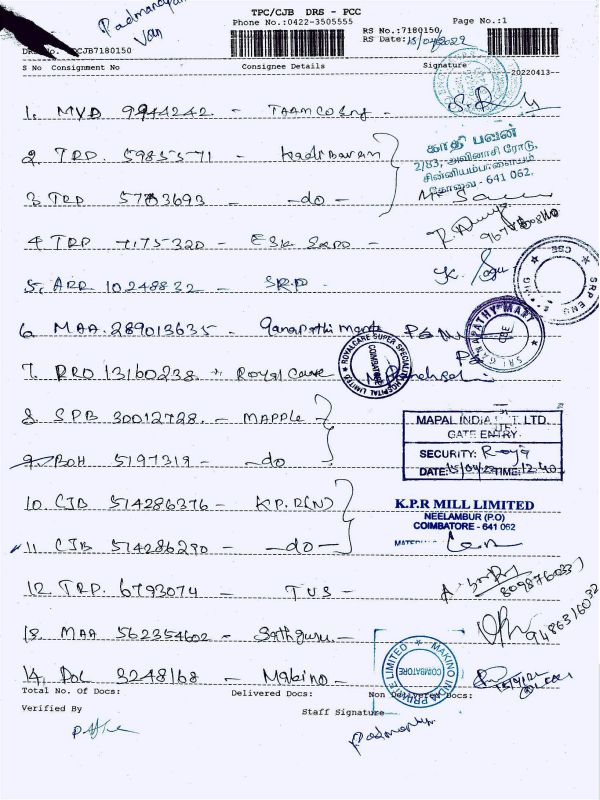 Padmanaban
Van
TPC/CJB DRS - PCC
Phone No.:0422-3505555 Page No.:1
RS No.:7180150
RS Date:15/04/2022
DRS No. CJB7180150
S No Consignment No Consignee Details Signature
20220413--
1. MVD 9944242 -
2. TRP. 59855571 -
காதி பவன்
2/53, அவினாசி ரோடு,
சின்னியம்பாளையம்
கோவை - 641 062.
3. TRP 5783693 - do -
4. TRP 7175320 - ESK Expo -
5. ARR 10248832 - SRP
SRP ENG
CBE
6. MAA. 289013635 - Ganapathi
SRI GANAPATHY MART
CBE
7. RRO 13160238 Royal Care
ROYALCARE SUPER SPECIALITY HOSPITAL LIMITED
COIMBATORE
8. SPB 30012728. - MAPPLE
MAPAL INDIA PVT. LTD.
GATE ENTRY
9. BOH 5197319 - do
SECURITY: Roja
DATE: 15/04/22 TIME: 12.40
10. CJB 514286376 - K.P.R(N)
K.P.R MILL LIMITED
NEELAMBUR (P.O)
COIMBATORE - 641 062
11. CJB 514286290 - do -
12. TRP. 6793074 - TUS -
8098760337
13. MAA 562354602 - Sathguru -
9486316032
14. POL 3248168 - Makino -
MAKINO INDIA PRIVATE LIMITED
COIMBATORE
Total No. of Docs: Delivered Docs: Non Delivered Docs:
Verified By
Staff Signature